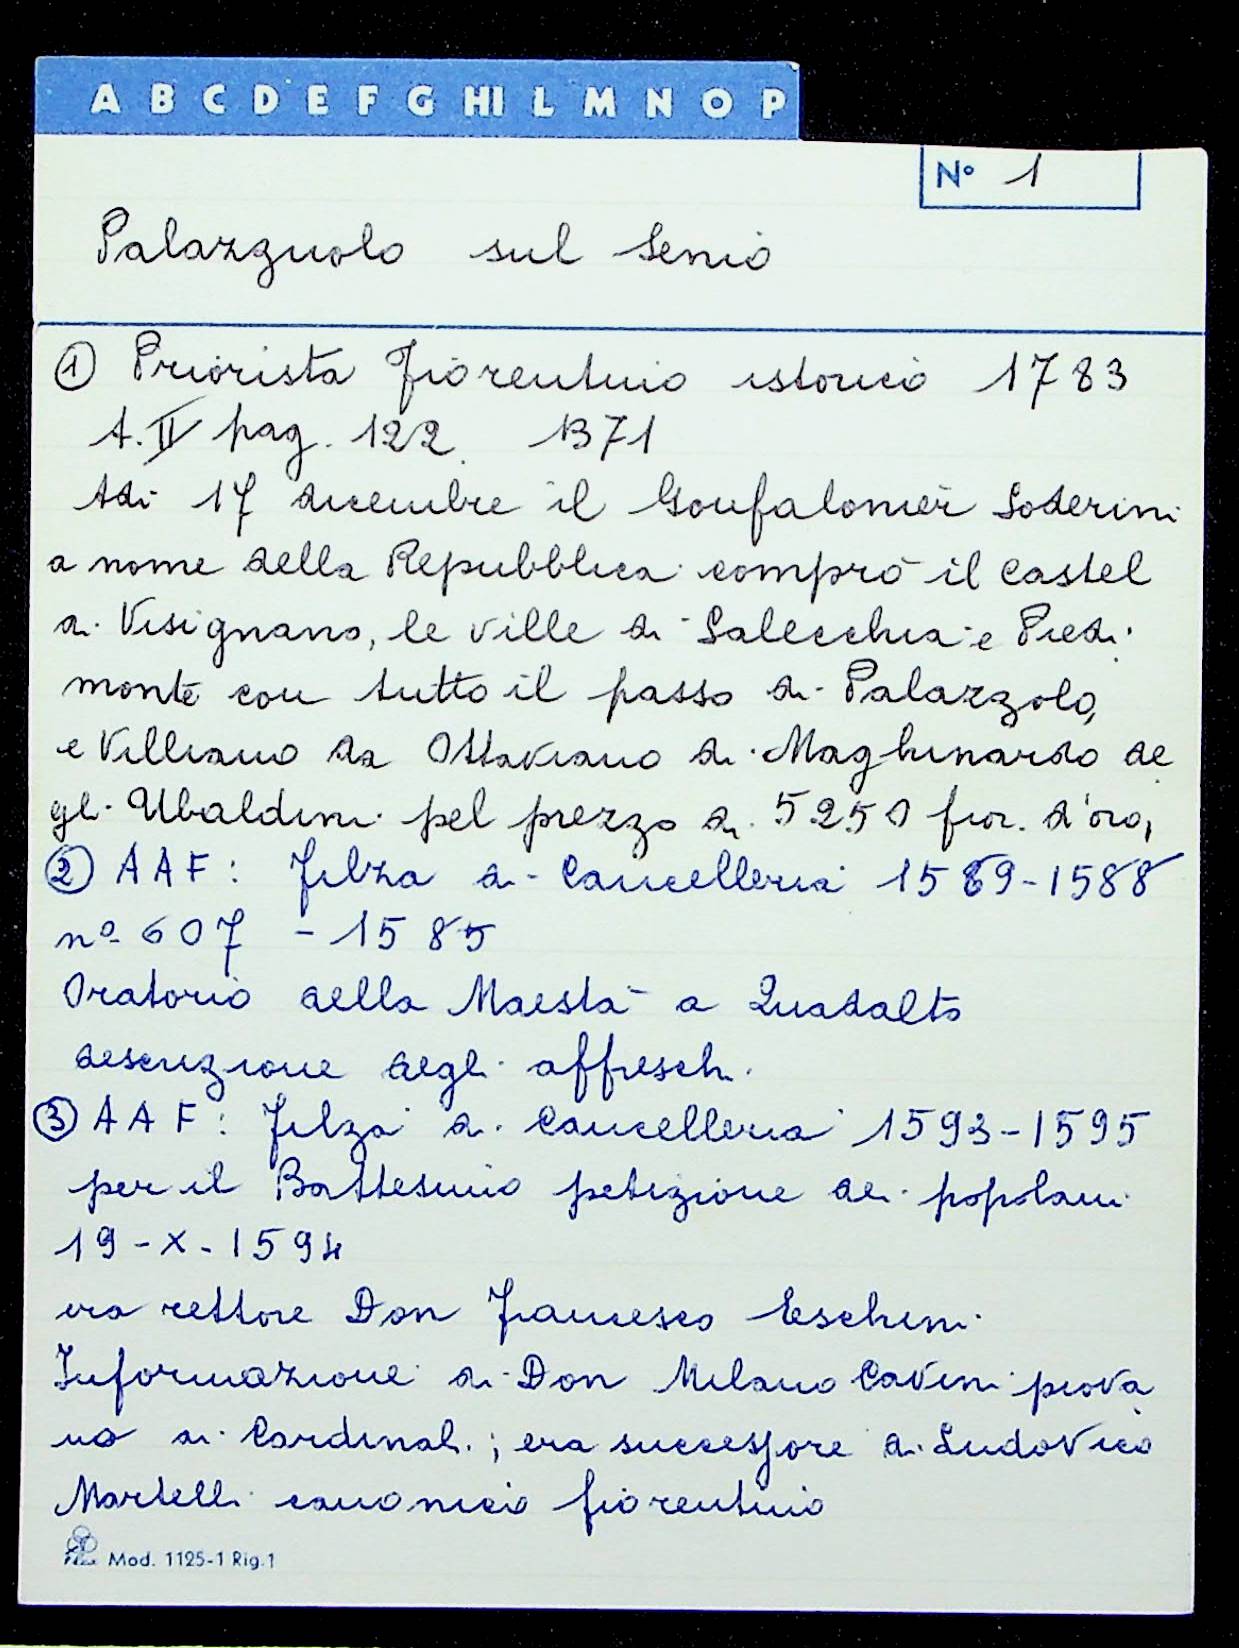 A B C D E F G HI L M N O P
N° 1
Palazzuolo sul Senio
① Priorista fiorentino istorico 1783
A. II pag. 122. 1371
Adi 17 dicembre il Gonfalonier Soderini
a nome della Repubblica comprò il castel
di Visignano, le ville di Salecchia e Piedi
monte con tutto il passo di Palazzolo,
e Villiano da Ottaviano di Maghinardo de
gli Ubaldini pel prezzo di 5250 fior. d'oro,
② AAF: Filza di Cancelleria 1569-1588
n° 607 - 1585
Oratorio della Maestà a Quadalto
descrizione degli affreschi.
③ AAF: Filza di Cancelleria 1593-1595
per il Battesimo petizione dei popolani
19-X-1594
era rettore Don Francesco Eschini
Informazione di Don Milano Cavini piova
no di Cardinali; era successore di Ludovico
Martelli canonico fiorentino
Mod. 1125-1 Rig.1